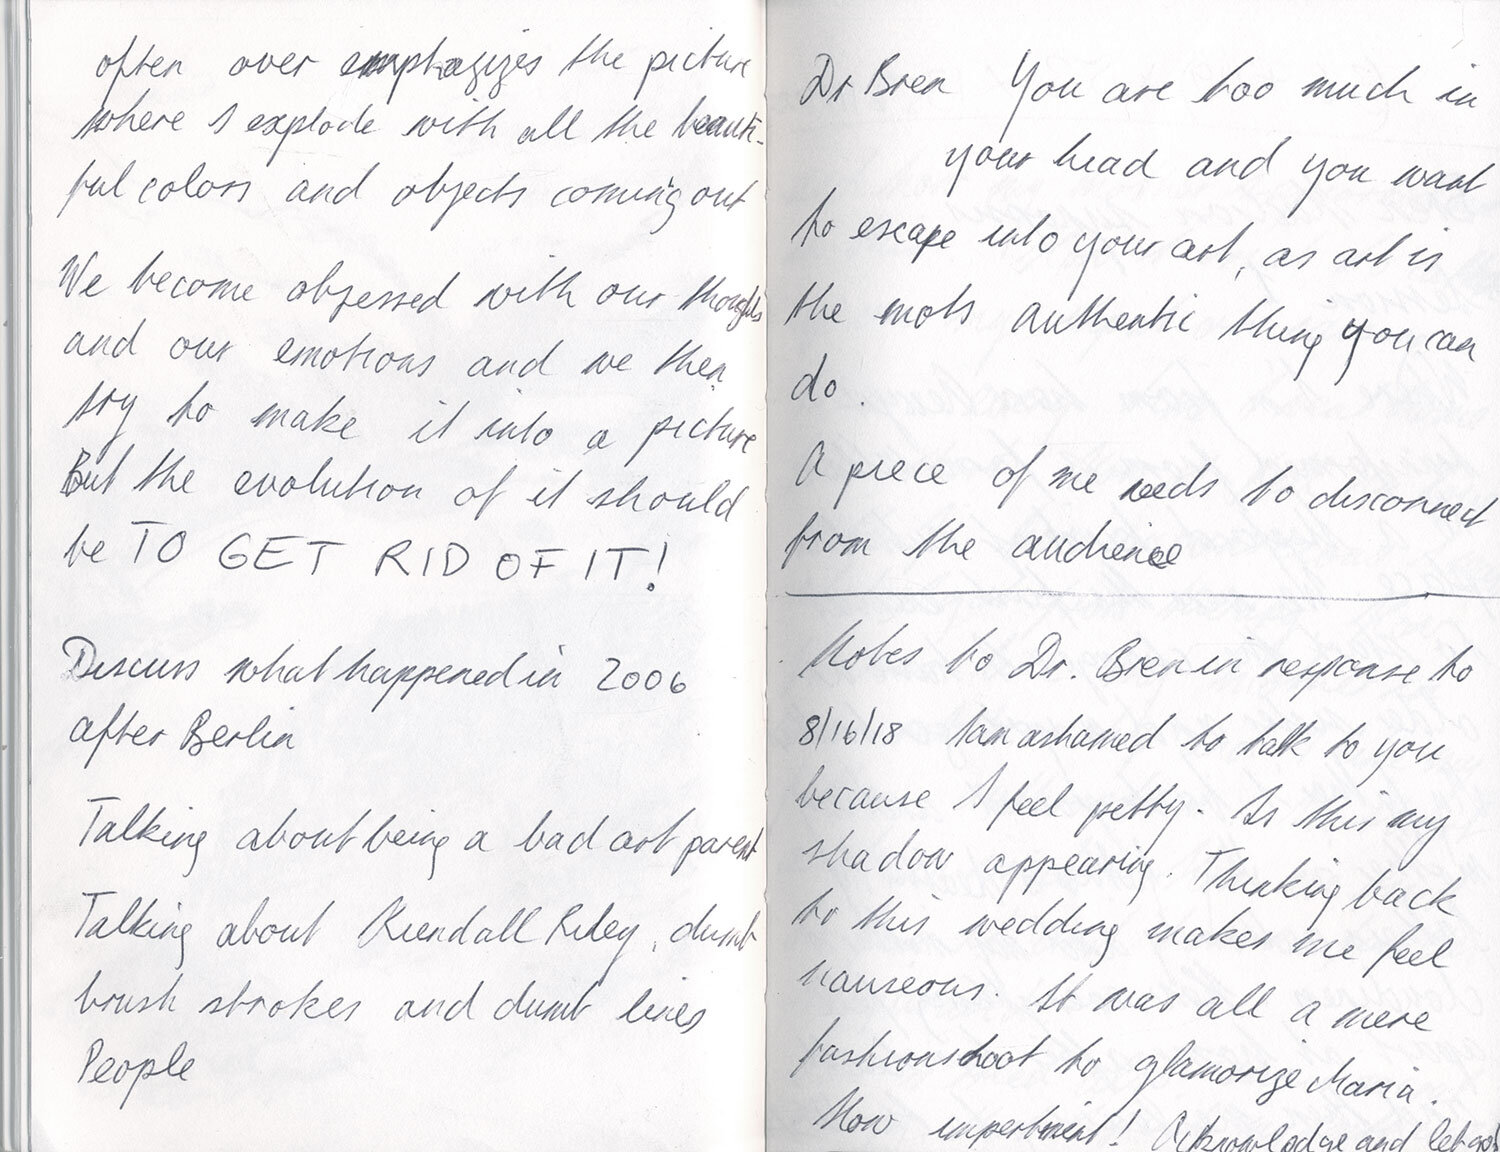 often over emphazizes the picture
where I explode with all the beauti-
ful colors and objects coming out
We become obsessed with our thoughts
and our emotions and we then
try to make it into a picture
But the evolution of it should
be TO GET RID OF IT!
Discuss what happened in 2006
after Berlin
Talking about being a bad art parent
Talking about Kiendall Riley, dumb
brush strokes and dumb lines
People
Dr Bren You are too much in
your head and you want
to escape into your art, as art is
the mots authentic thing you can
do.
A piece of me needs to disconnect
from the audience
Notes to Dr. Bren in response to
8/16/18 I am ashamed to talk to you
because I feel petty. Is this my
shadow appearing. Thinking back
to this wedding makes me feel
nauseous. It was all a mere
fashionshoot to glamorize Maria.
How impertinent! Acknowledge and let go